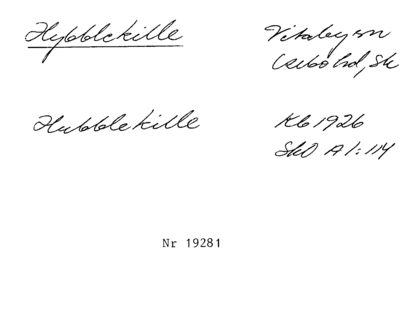 Hybblekille
Vitaby sn
Hubblekille
Kb 1926
SkO A 1:114
Nr 19281